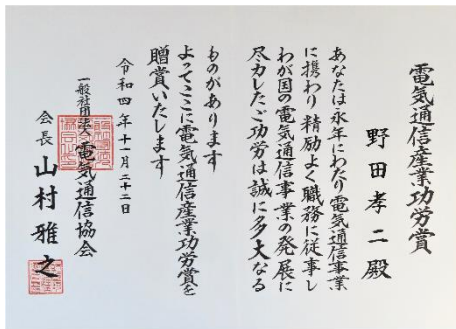 電気通信産業功労賞
野田孝二殿
あなたは永年にわたり電気通信事業
に携わり精励よく職務に従事し
わが国の電気通信事業の発展に
尽力したご功労は誠に多大なる
ものがあります
よってここに電気通信産業功労賞を
贈賞いたします
令和四年十一月二十二日
一般社団法人電気通信協会
会長 山村雅之